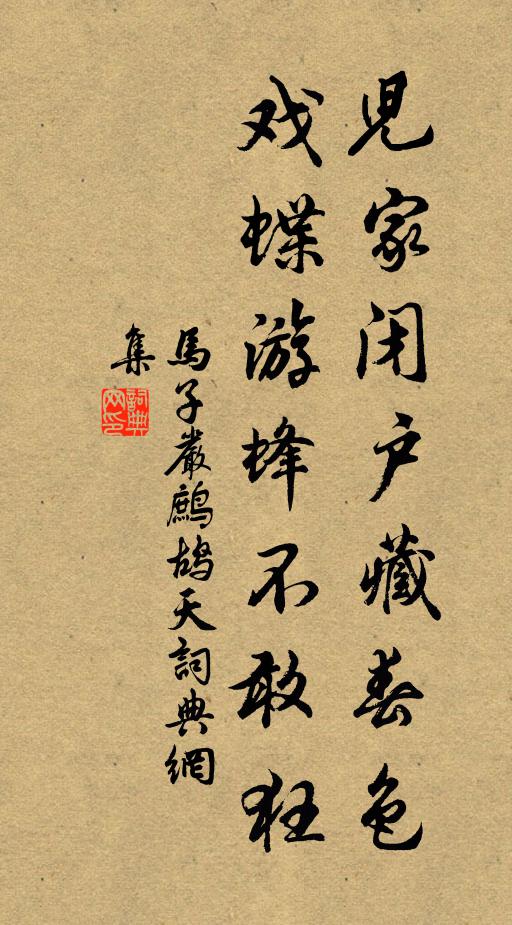 児家闭户藏春色
戏蝶游蜂不敢狂
馬子嚴鷓鴣天詞典網
集
詞典網印